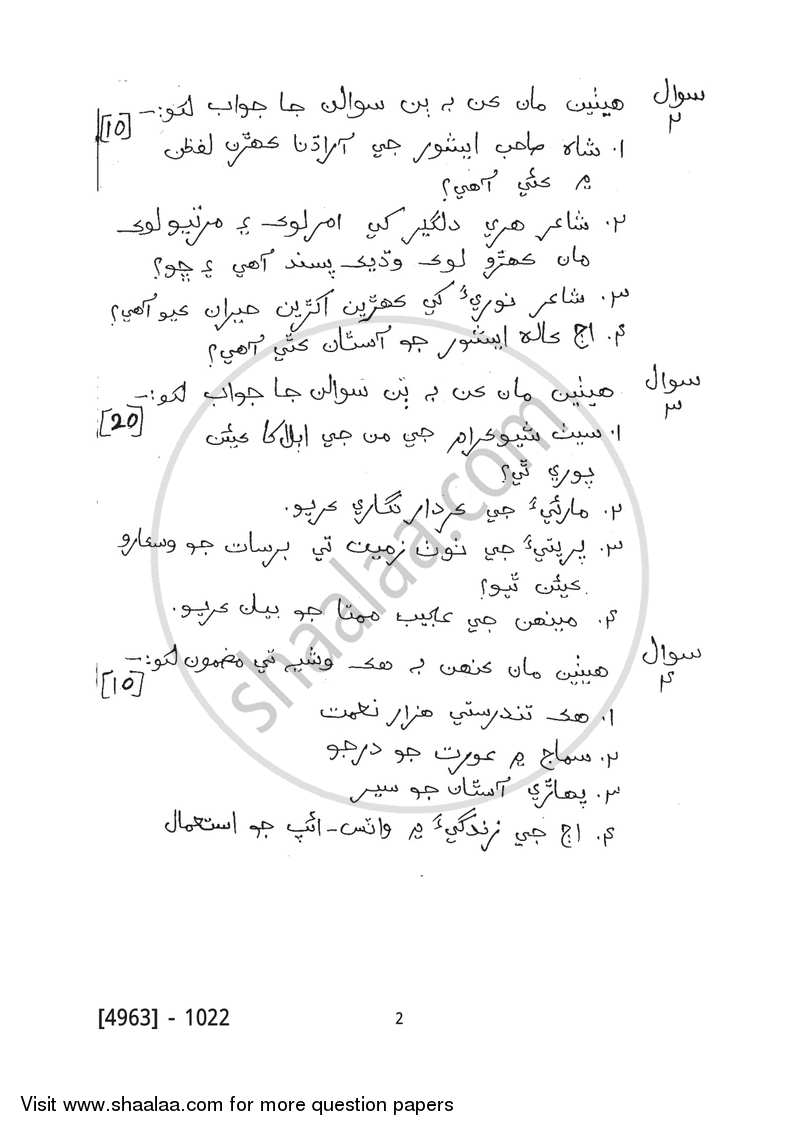 سوال ۲ هيٺين مان ڪن به ٻن سوالن جا جواب لکو:- [10]
۱. شاه صاحب ايشور جي آراڌنا ڪهڙن لفظن
۾ ڪئي آهي؟
۲. شاعر هري دلگير کي امرلوڪ ۽ مرتيو لوڪ
مان ڪهڙو لوڪ وڌيڪ پسند آهي ۽ ڇو؟
۳. شاعر نوريءَ کي ڪهڙين اکڙين حيران ڪيو آهي؟
۴. اڄ ڪالھ ايشور جو آستان ڪٿي آهي؟
سوال ۳ هيٺين مان ڪن به ٻن سوالن جا جواب لکو:- [20]
۱. سيٺ شيوڪرام جي من جي ابلاکا ڪيئن
پوري ٿي؟
۲. مارئيءَ جي ڪردار نگاري ڪريو.
۳. پريتيءَ جي نوٺ زمين تي برسات جو وسڪارو
ڪيئن ٿيو؟
۴. مينهن جي عجيب ممتا جو بيان ڪريو.
سوال ۴ هيٺين مان ڪنهن به هڪ وشيه تي مضمون لکو:- [10]
۱. هڪ تندرستي هزار نعمت
۲. سماج ۾ عورت جو درجو
۳. پهاڙي آستان جو سير
۴. اڄ جي زندگيءَ ۾ واٽس-ائپ جو استعمال
shaalaa.com
[4963] - 1022 2
Visit www.shaalaa.com for more question papers